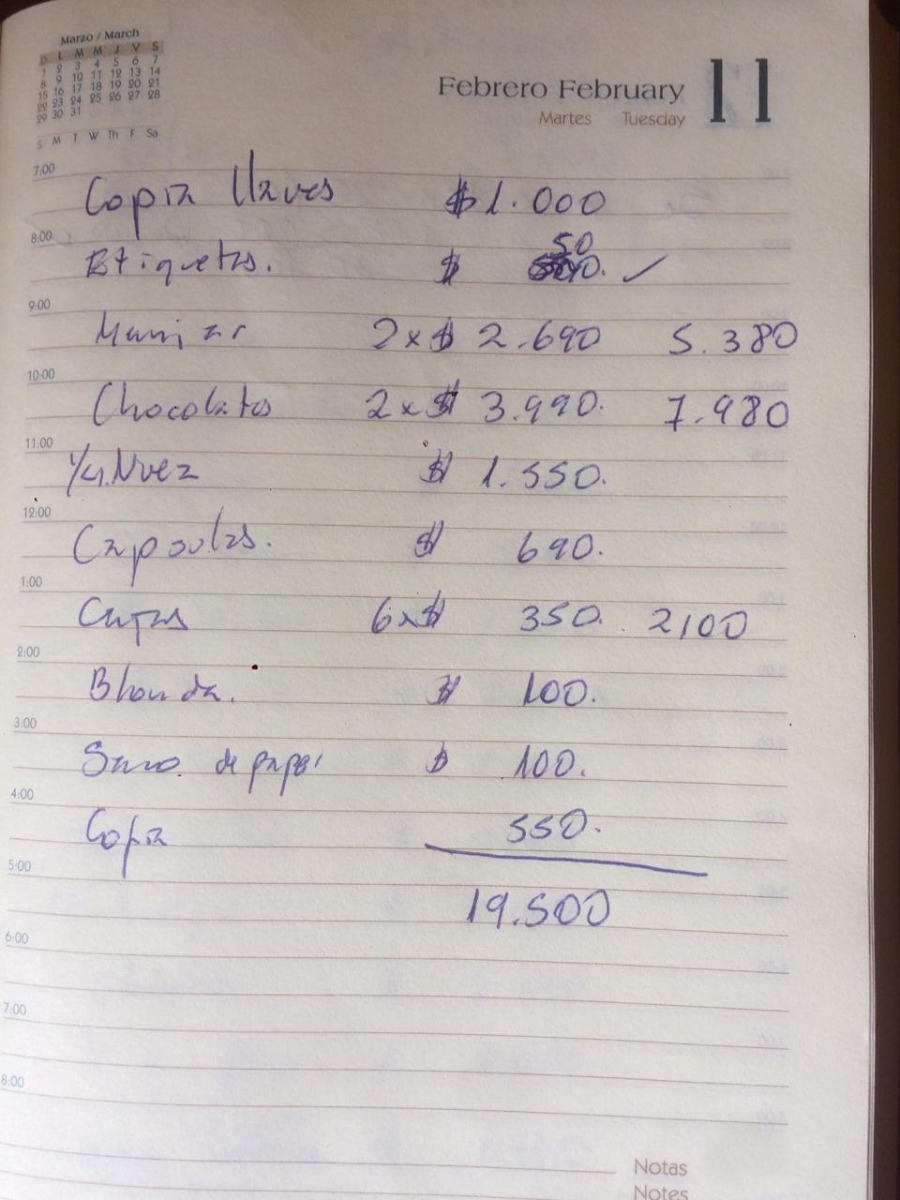 Marzo / March
D L M M J V S
1 2 3 4 5 6 7
8 9 10 11 12 13 14
15 16 17 18 19 20 21
22 23 24 25 26 27 28
29 30 31
S M T W Th F Sa
Febrero February 11
Martes Tuesday
7:00
Copia llaves $ 1.000
8:00
Etiquetas. $ 50
9:00
Manjar 2 x $ 2.690 5.380
10:00
Chocolates 2 x $ 3.990. 7.980
11:00
1/4 Nuez $ 1.550.
12:00
Capsulas. $ 690.
1:00
Cajas 6 x $ 350. 2100
2:00
Blonda. $ 100.
3:00
de papel $ 100.
4:00
Copia 550.
5:00
19.500
6:00
7:00
8:00
Notas
Notes